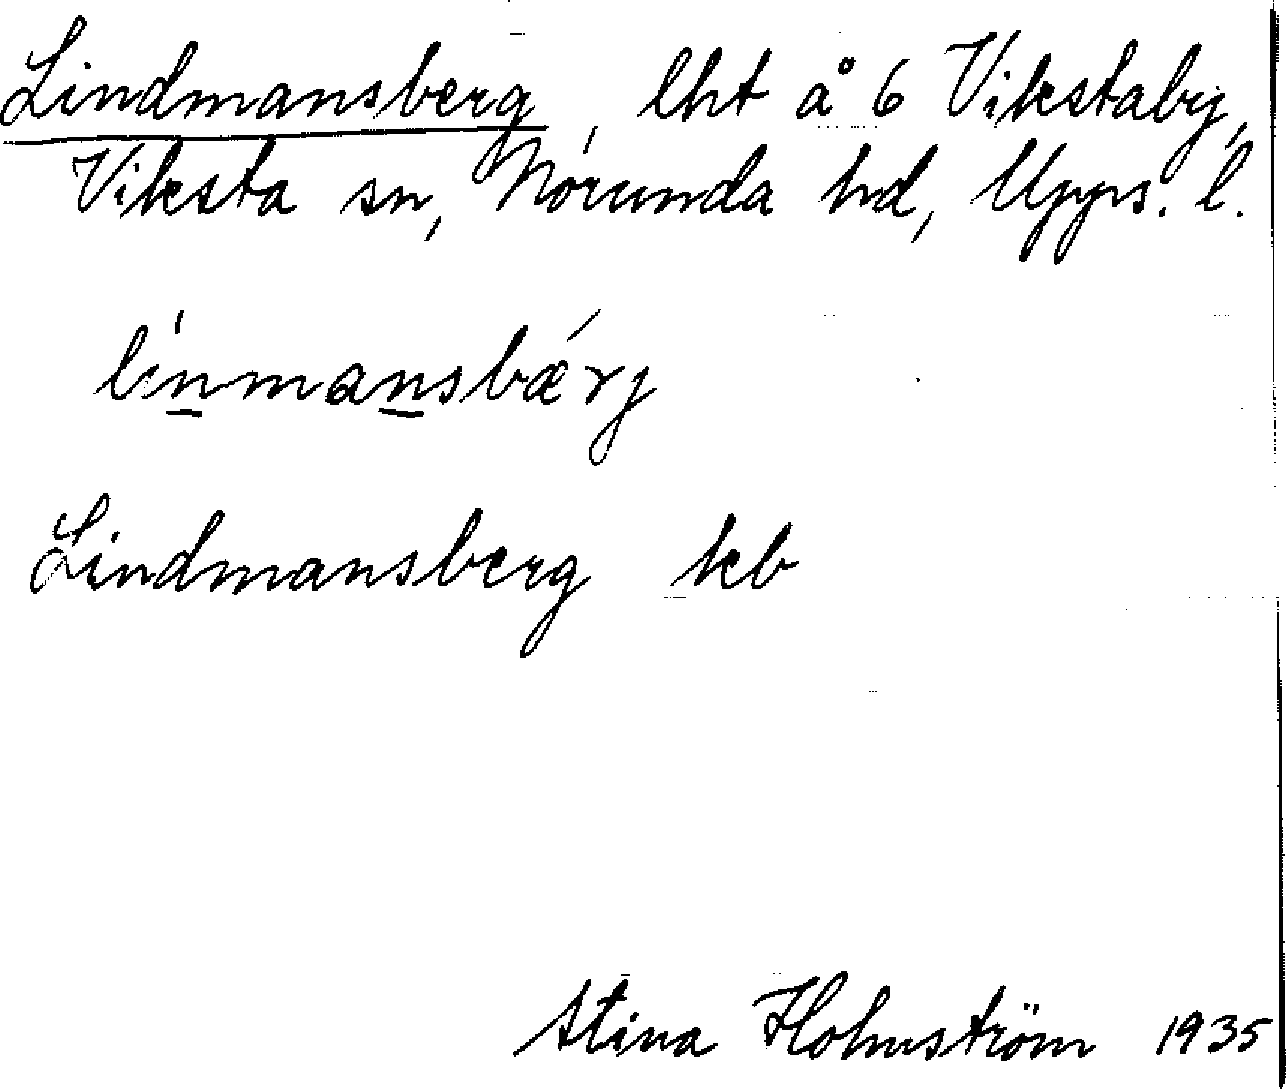 Lindmansberg, lht å 6 Vikstaby,
Viksta sn, Norunda hd, Upps. l.
línmansbǽrj
Lindmansberg kb
Stina Holmström 1935